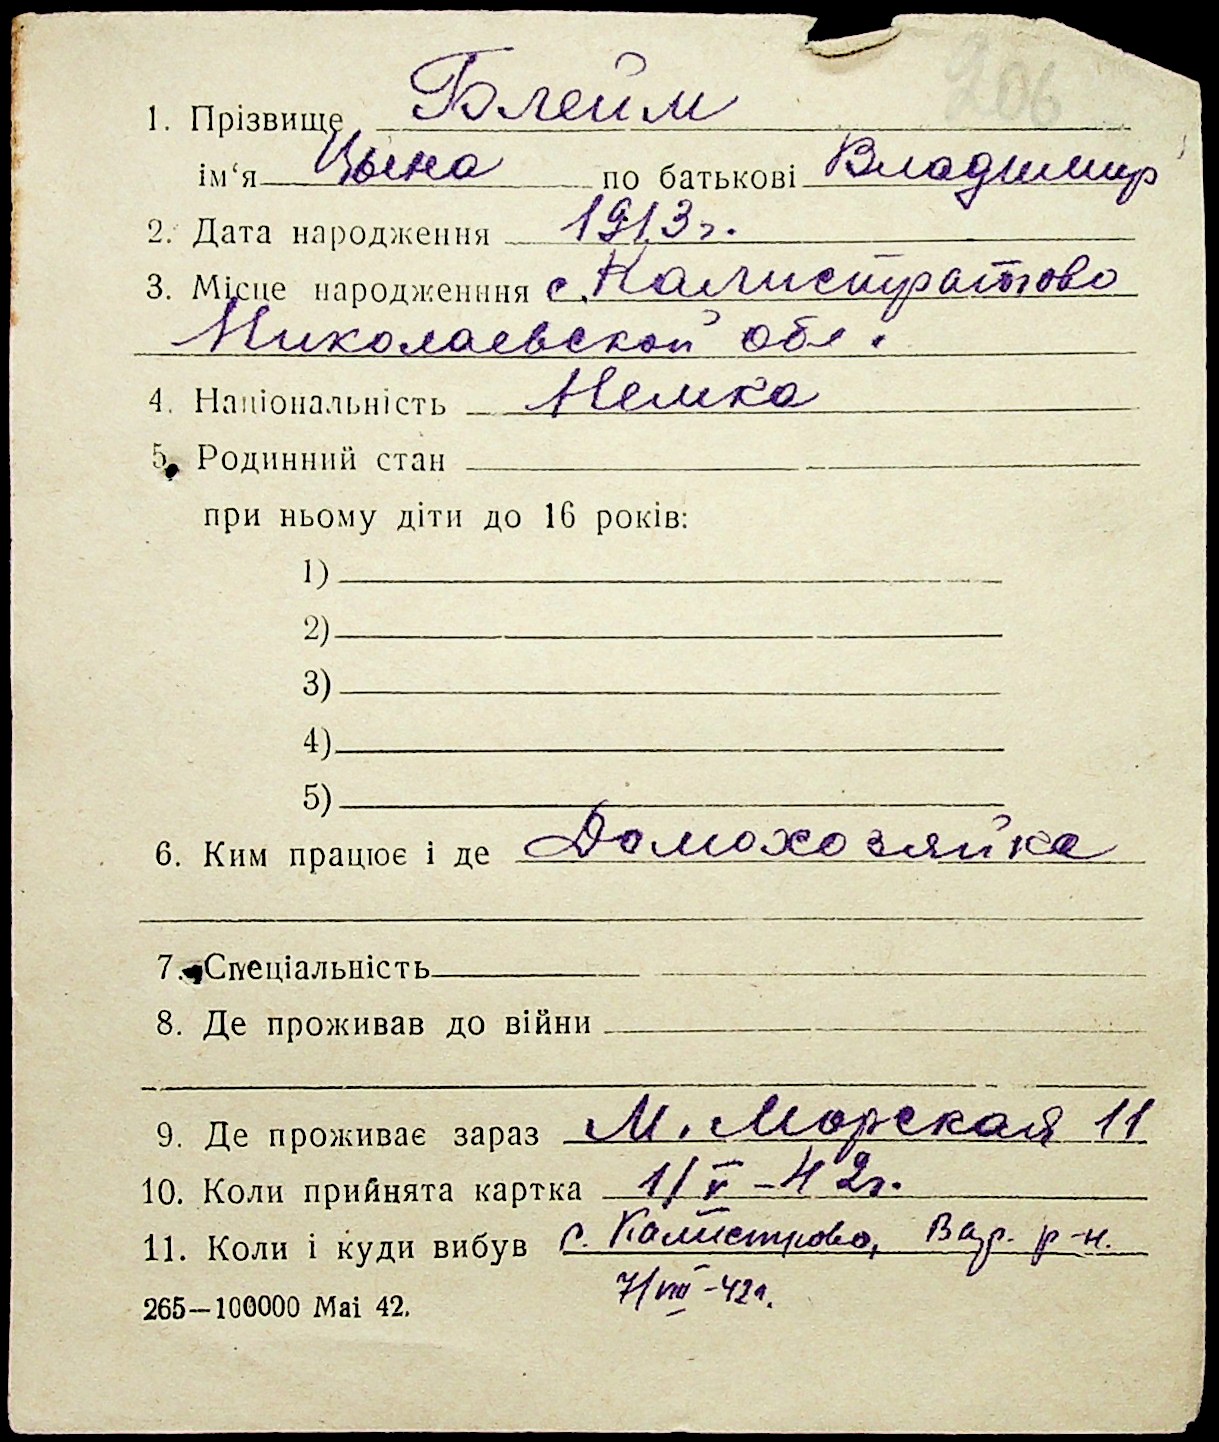 206
1. Прізвище Блейм
ім‘я Цына по батькові Владимир
2. Дата народження 1913 г.
3. Місце народженння с. Калистратово
Николаевской обл.
4. Національність Немка
5. Родинний стан
при ньому діти до 16 років:
1)
2)
3)
4)
5)
6. Ким працює і де Домохозяйка
7. Спеціальність
8. Де проживав до війни
9. Де проживає зараз М. Морская 11
10. Коли прийнята картка 1/V – 42 г.
11. Коли і куди вибув с. Калистрово, Вар. р-н.
7/VIII – 42 г.
265—100000 Mai 42.